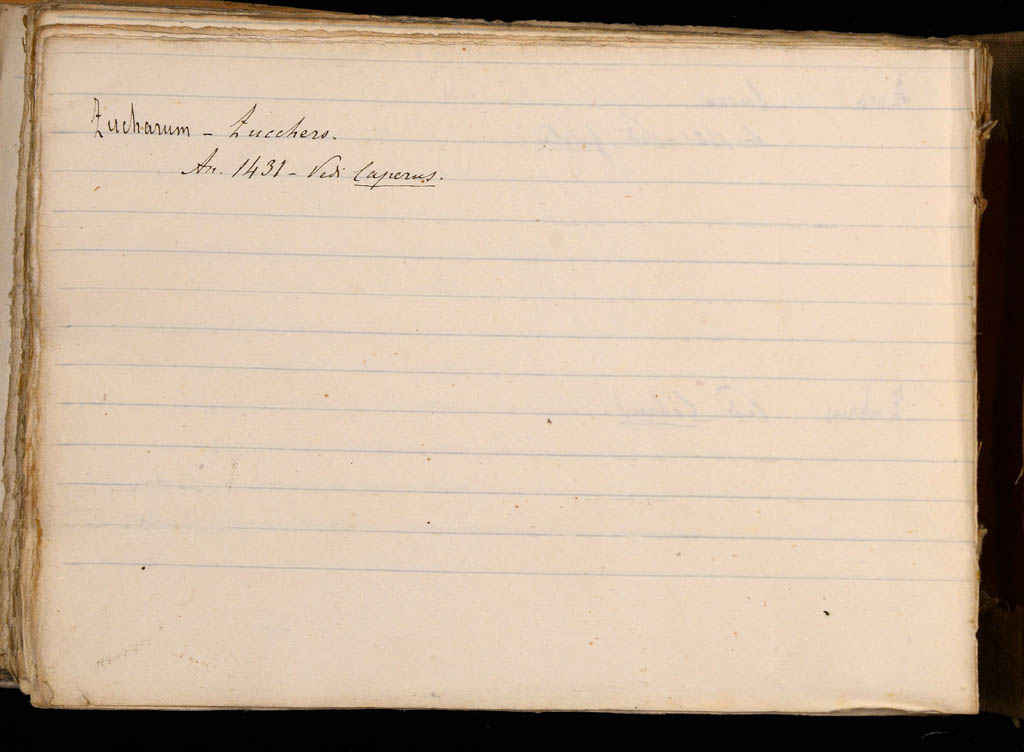 Zucharum - Zucchero.
An. 1431 - Vedi Caperus.